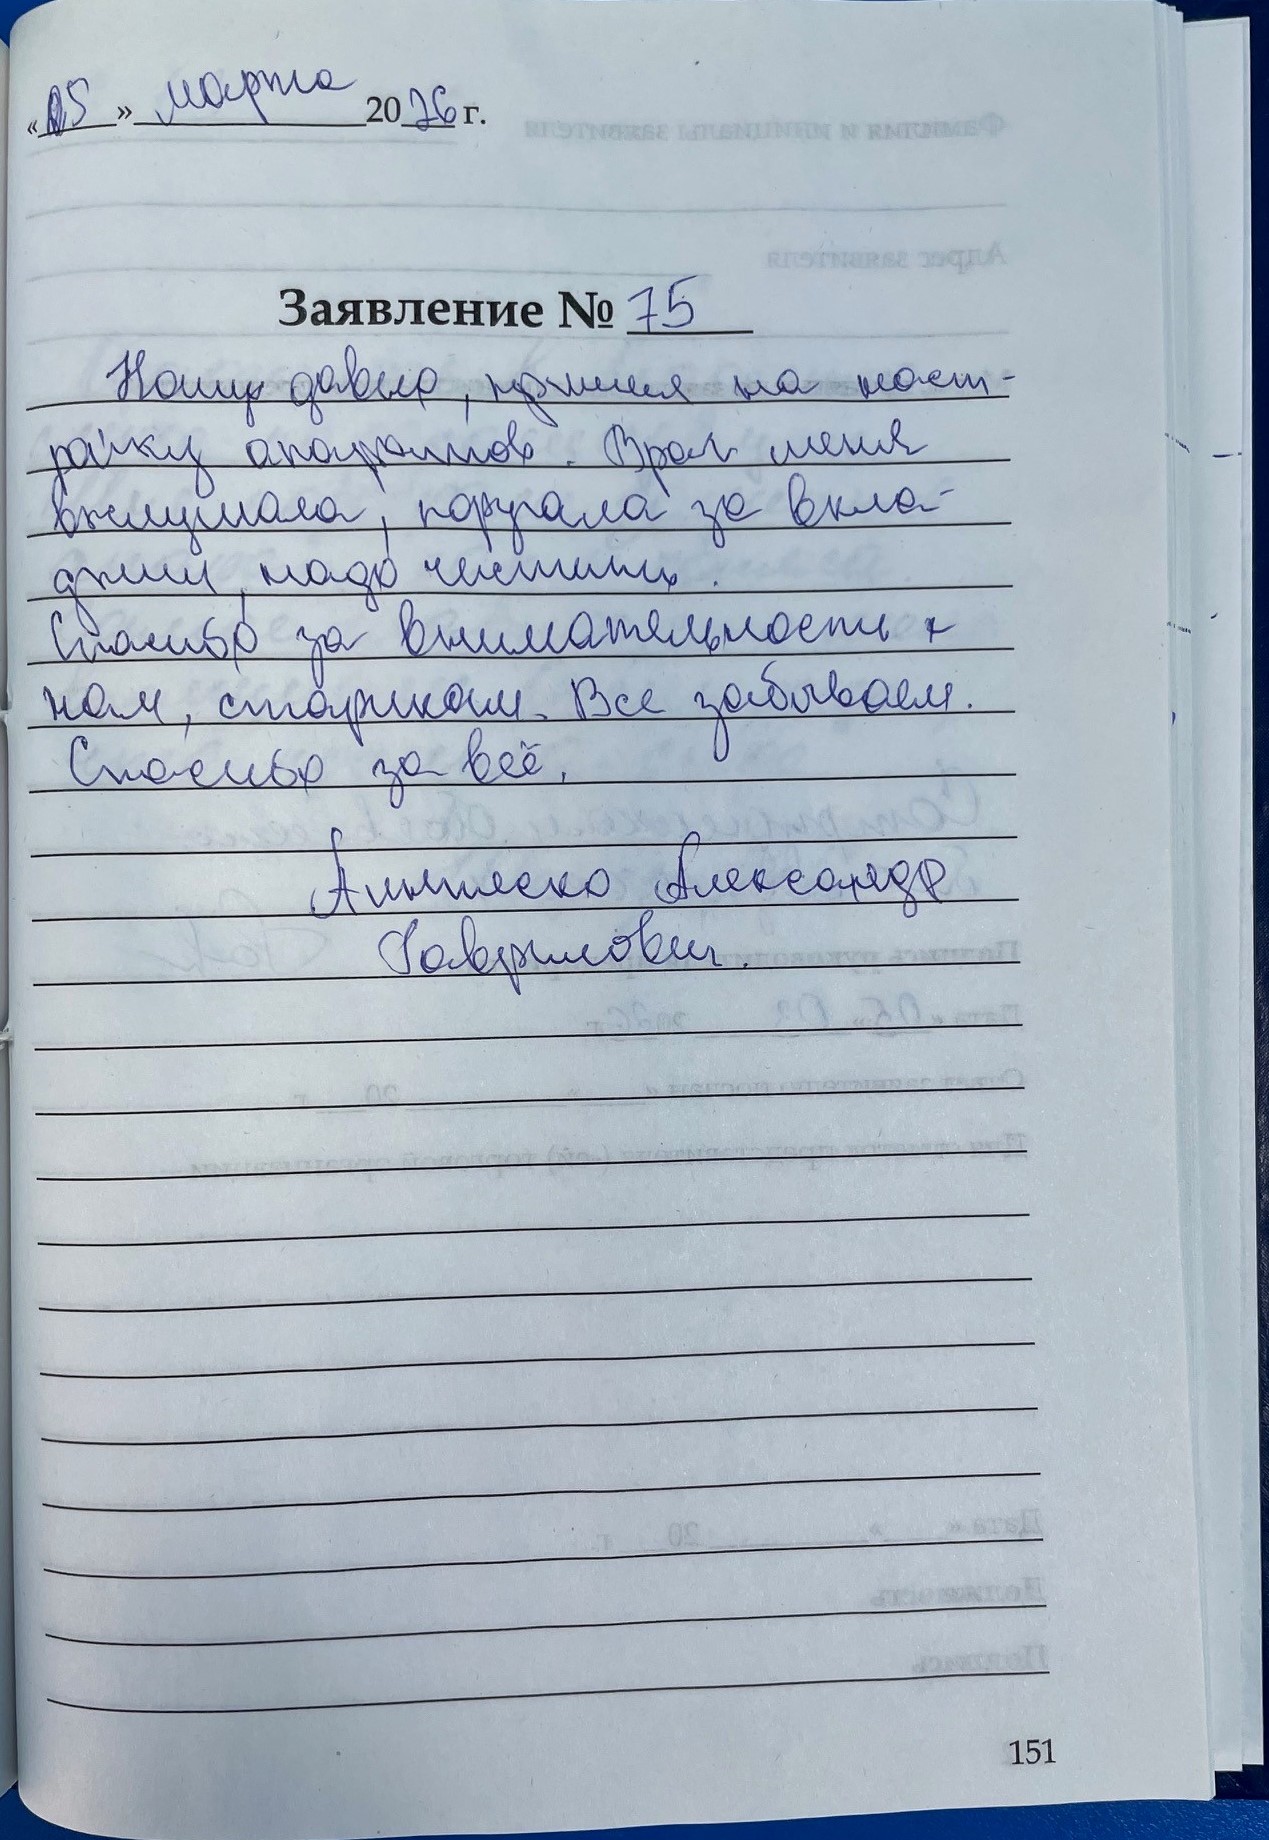 «05» марта 2026 г.
Заявление № 75
Ношу давно, пришел на наст-
ройку апаратов. Врач меня
выслушала, поругала за вкла-
дыши, надо чистить.
Спасибо за внимательность к
нам, старикам. Все забываем.
Спасибо за всё.
Александр
Гаврилович.
151